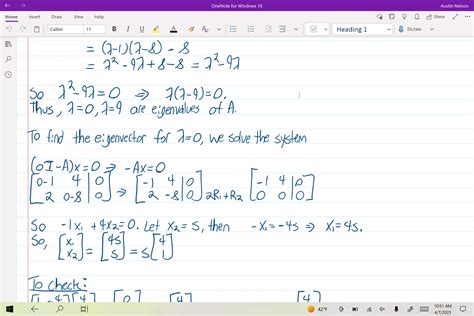 OneNote for Windows 10
Austin Nelson
Home Insert Draw View Help
Calibri 11 B I U A Heading 1 Dictate
= (λ-1)(λ-8) - 8
= λ²-9λ+8-8 = λ²-9λ
So λ²-9λ=0 ⇒ λ(λ-9)=0.
Thus, λ=0, λ=9 are eigenvalues of A.
To find the eigenvector for λ=0, we solve the system
(0I-A)x=0 → -Ax=0
[0-1 4 | 0] → [-1 4 | 0] [-1 4 | 0]
[2 0-8 | 0] [2 -8 | 0] 2R₁+R₂ [0 0 | 0]
So -1x₁ + 4x₂=0. Let x₂=s, then -x₁=-4s ⇒ x₁=4s.
So, [x₁] = [4s] = s[4]
[x₂] [s] [1]
To check:
[1 -4][4] [0] [4] [4]
42°F
10:51 AM
4/7/2023